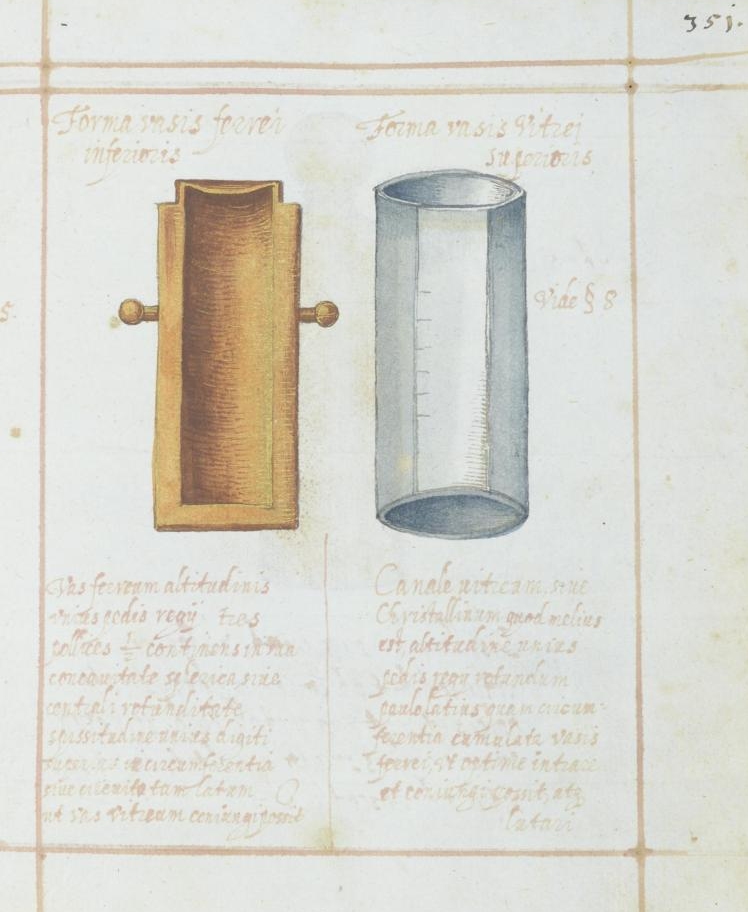 351.
Forma vasis ferrei
inferioris
Forma vasis Vitrei
superioris
Vide § 8
5.
Vas ferreum altitudinis
unius pedis regii tres
pollices continens in
concavitate sive
rotunditate
spissitudine unius digiti
circumferentia
sive latum
ut vas vitreum coniungi possit
Canale sive
Christallinum quod melius
est altitudine unius
pedis regii rotundum
paulo latius quam circum-
ferentia cumulata vasis
ferrei, ut optime intrare
et coniungi possit, atq
lutari